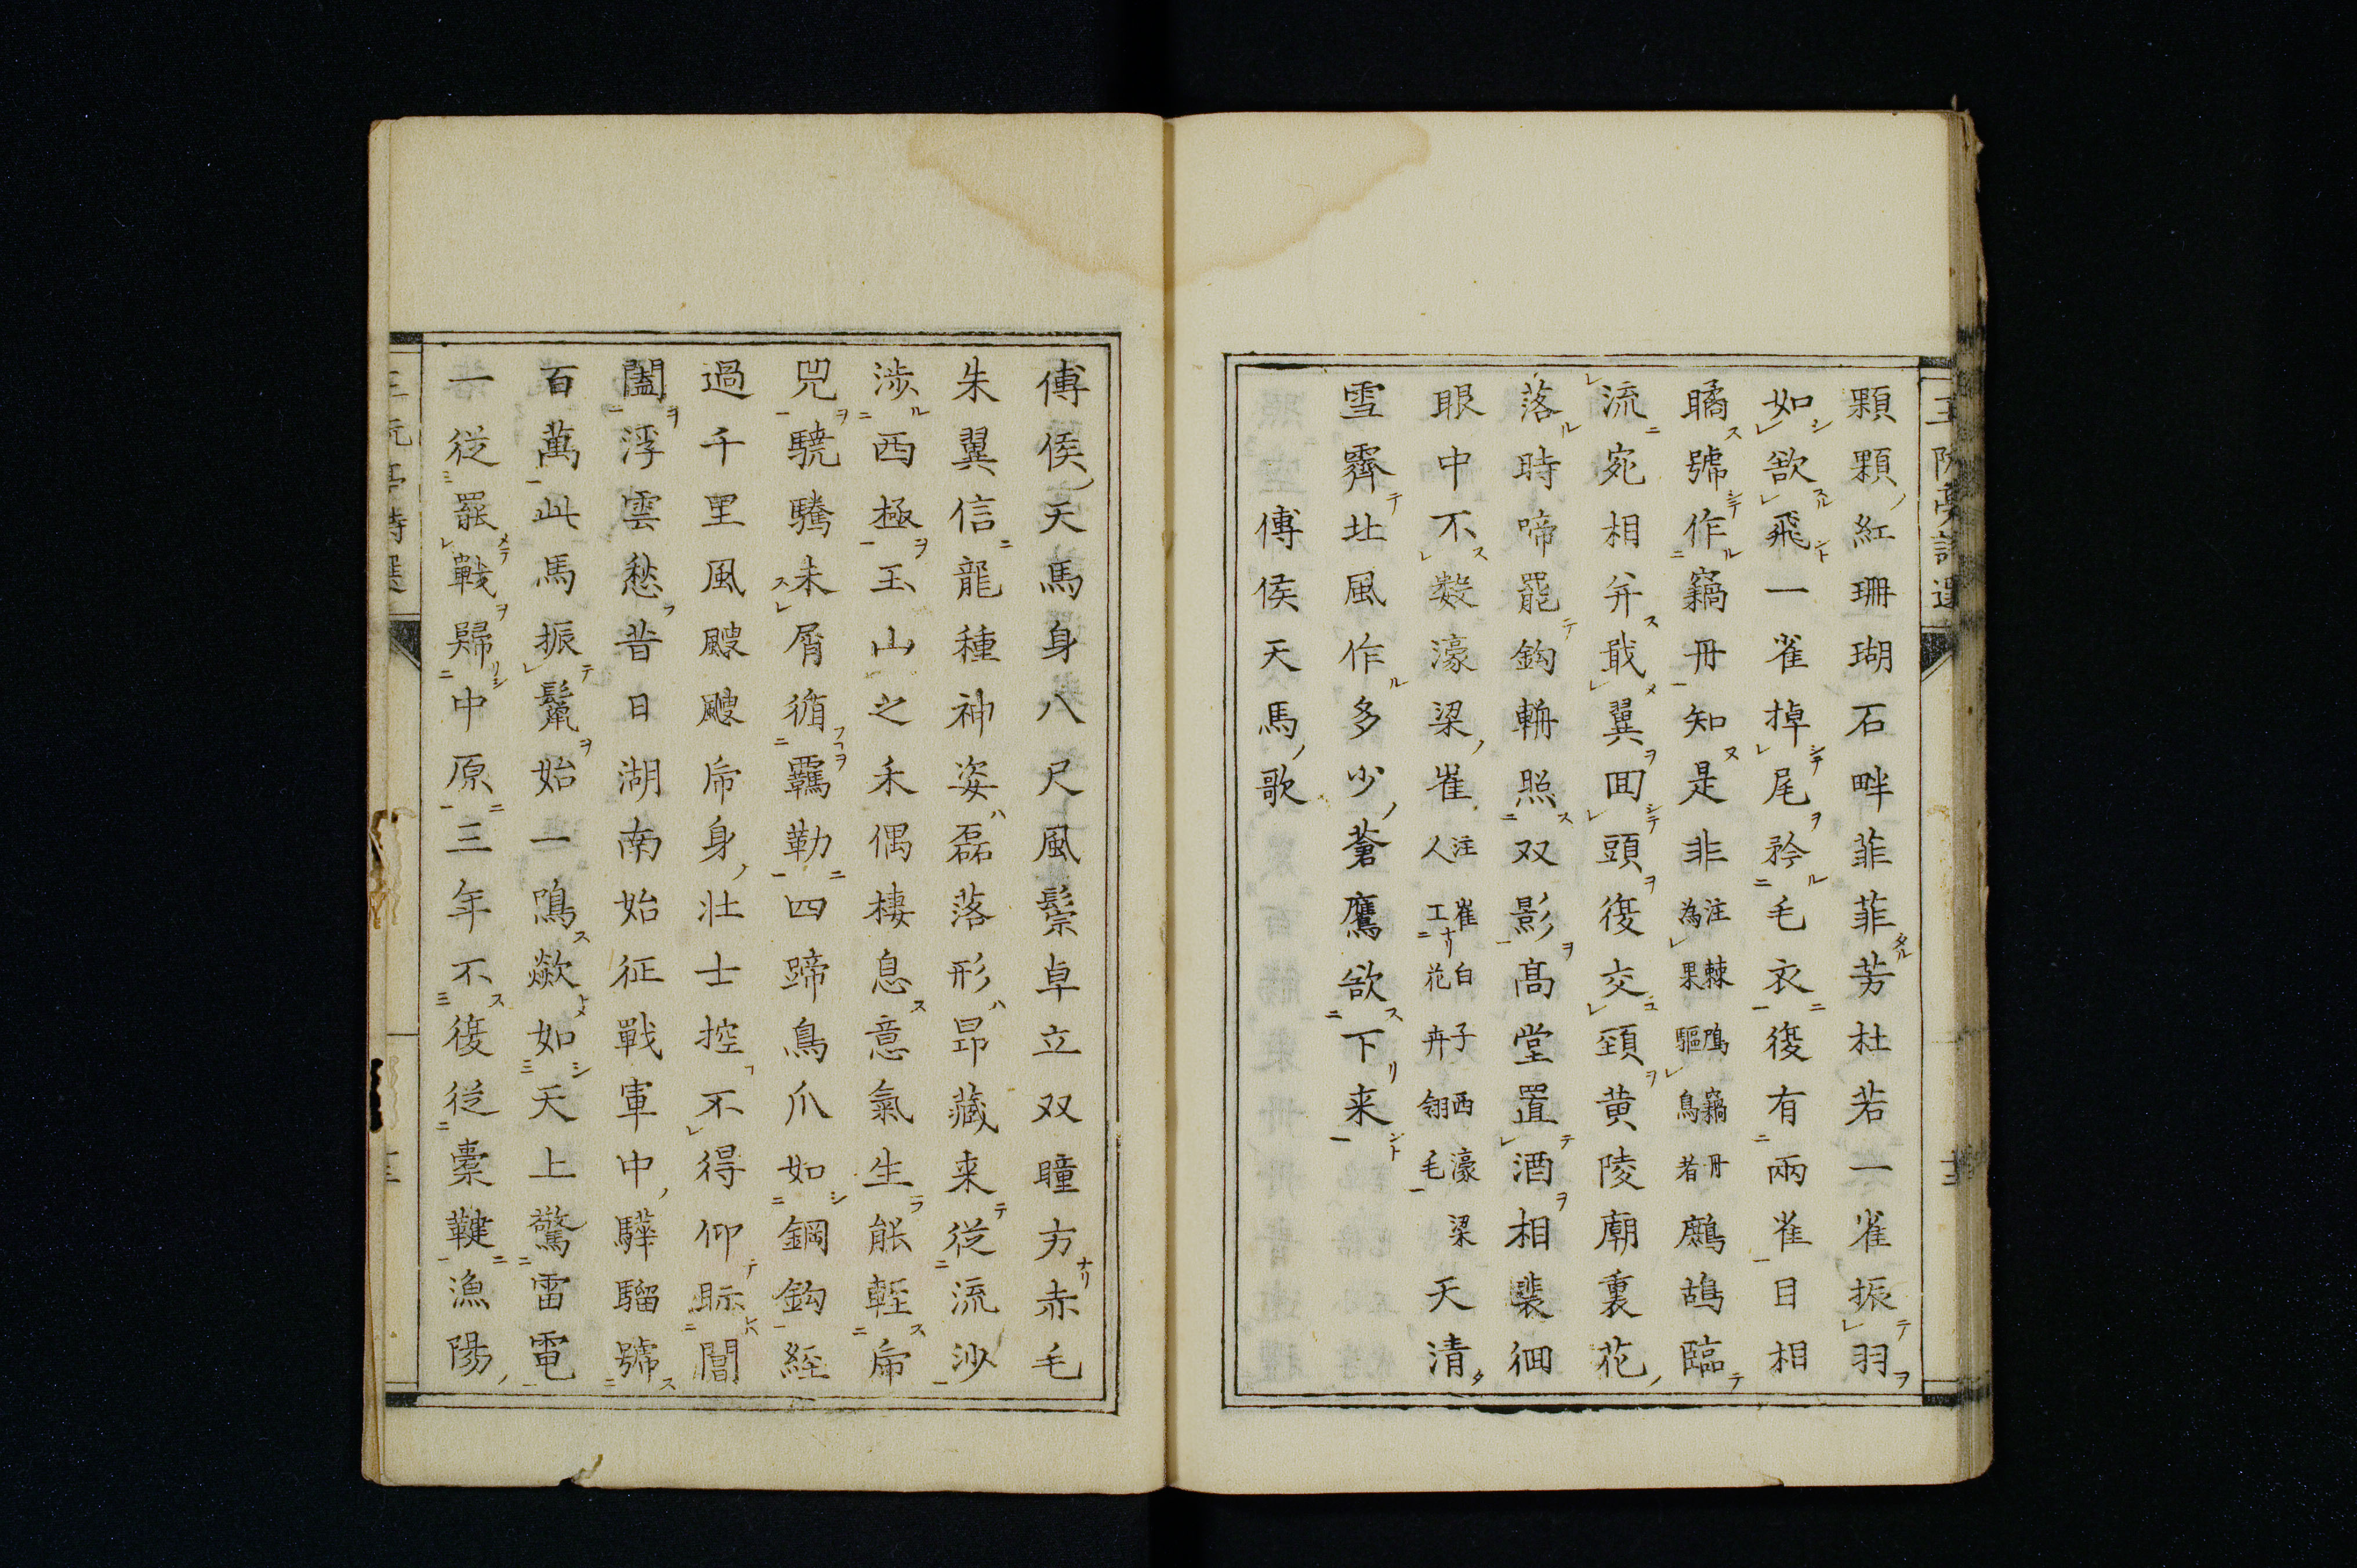 顆顆紅珊瑚石畔菲菲芳杜若一雀振羽
如欲飛一雀掉尾矜毛衣復有兩雀目相
瞲號作竊丹知是非注棘鳲竊丹為果驅鳥者鷓鴣臨
流宛相并戢翼回頭復交頸黄陵廟裏花
落時啼罷鈎輈照双影髙堂置酒相裴徊
眼中不数濠梁崔注崔白子西濠梁人工花卉翎毛天清
雪霽北風作多少蒼鷹欲下来
傅侯天馬歌
傅侯天馬身八尺風鬃卓立双瞳方赤毛
朱翼信龍種神姿磊落形昂藏来從流沙
渉西極玉山之禾偶棲息意氣生能輕虎
兕驍騰未屑循羈勒四蹄鳥爪如鋼鈎經
過千里風颼颼虎身壮士控不得仰眎閶
闔浮雲愁昔日湖南始征戰軍中驊騮號
百萬此馬振鬣始一鳴歘如天上驚雷電
一從罷戰歸中原三年不復從櫜鞬漁陽